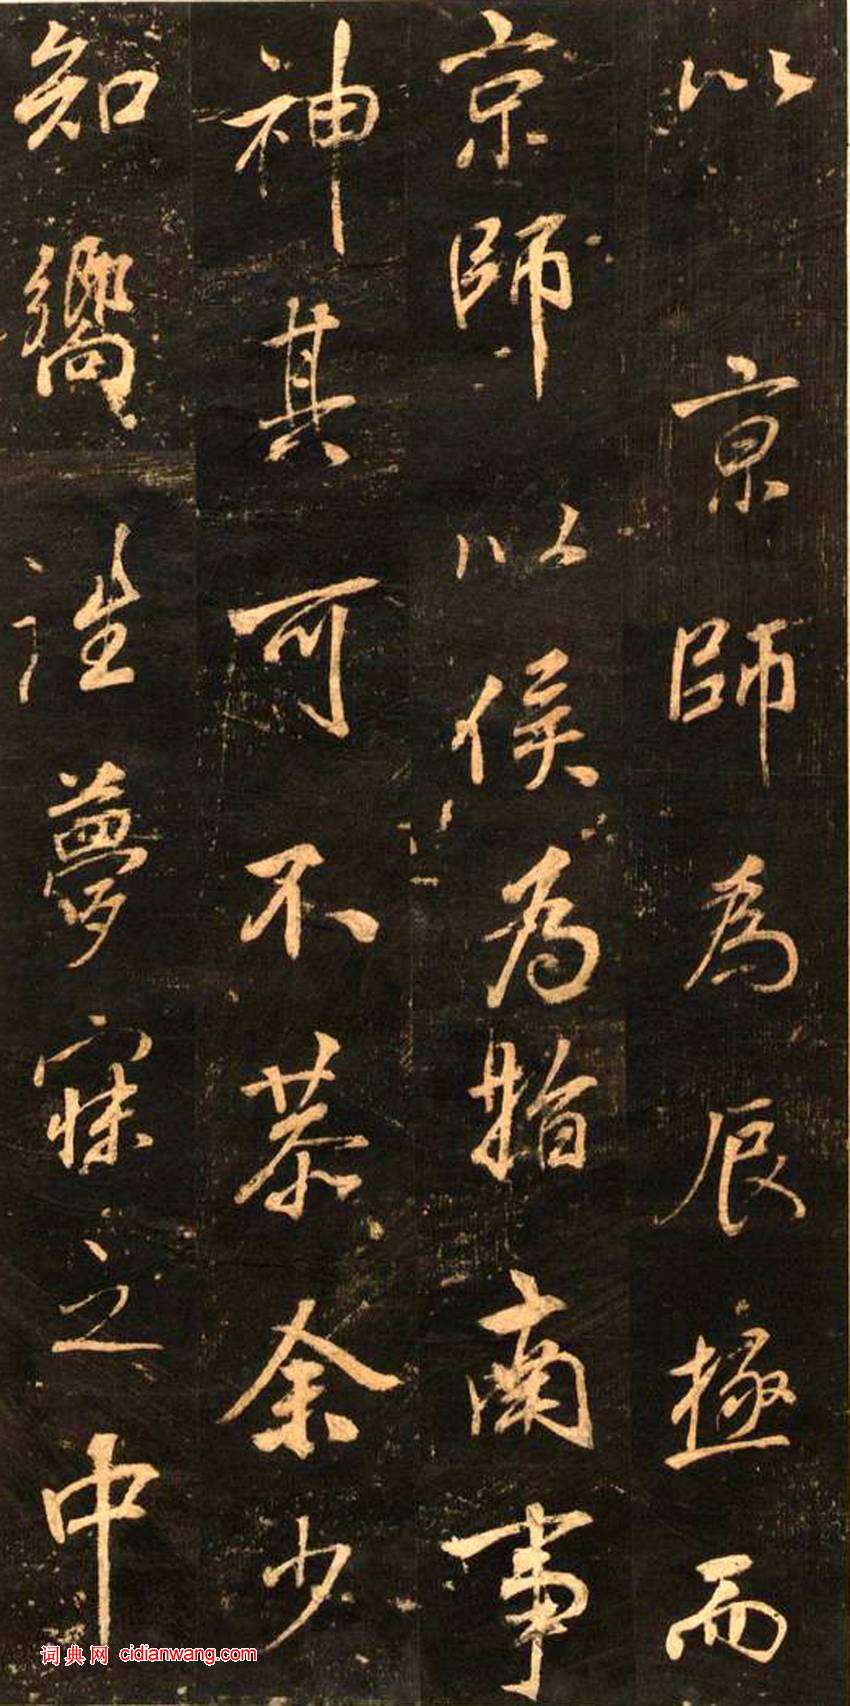 以京師為辰極而
京師以侯為指南事
神其可不恭余少
知嚮往夢寐之中
词典网 cidianwang.com